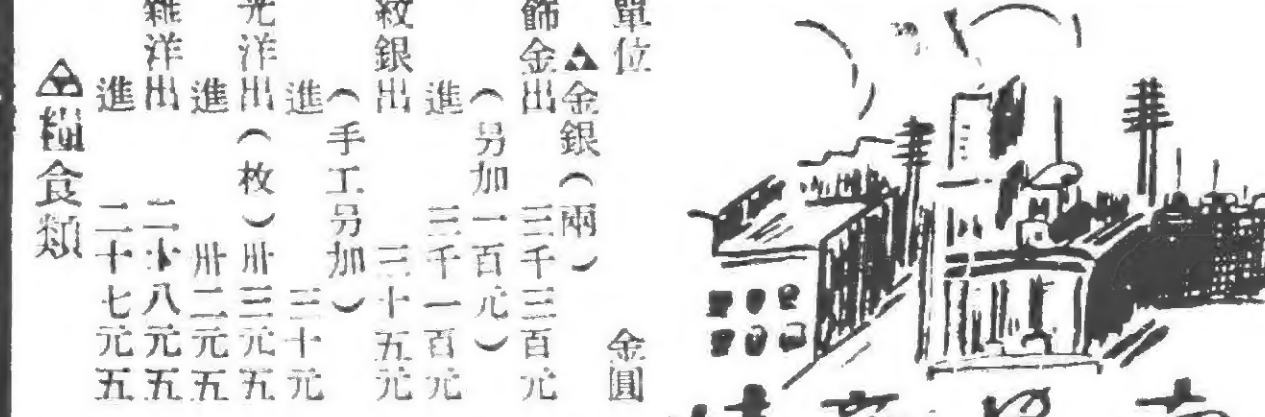 單位　金圓
▲金銀（兩）
飾金出　三千三百元
（另加一百元）
進　三千一百元
紋銀出　三十五元
（手工另加）
進　三十元
光洋出（枚）卅三元五
進　卅二元五
雜洋出　二十八元五
進　二十七元五
糧食類